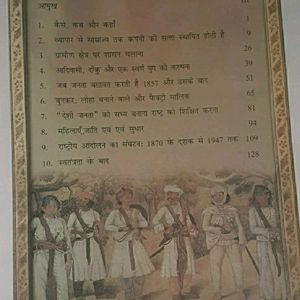 आमुख iii
1. कैसे, कब और कहाँ 1
2. व्यापार से साम्राज्य तक कंपनी की सत्ता स्थापित होती है 9
3. ग्रामीण क्षेत्र पर शासन चलाना 26
4. आदिवासी, दीकु और एक स्वर्ण युग की कल्पना 39
5. जब जनता बग़ावत करती है 1857 और उसके बाद 51
6. बुनकर, लोहा बनाने वाले और फैक्ट्री मालिक 65
7. "देशी जनता" को सभ्य बनाना राष्ट्र को शिक्षित करना 81
8. महिलाएँ, जाति एवं सुधार 94
9. राष्ट्रीय आंदोलन का संघटन: 1870 के दशक से 1947 तक 109
10. स्वतंत्रता के बाद 128